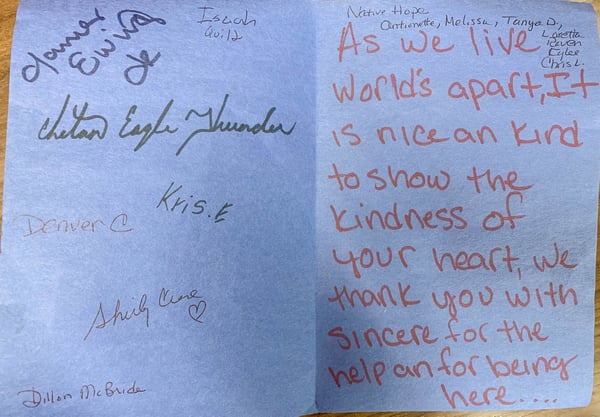 James
Ewing
Jr
Isaiah
Chetan Eagle Thunder
Kris.E
Denver C
Shirly Crane
Dillon McBride
Native Hope
Antionette, Melissa, Tanya D.,
Loretta
Raven
Kylee
Chris L.
As we live
world's apart, It
is nice an kind
to show the
kindness of
your heart, we
thank you with
sincere for the
help an for being
here....